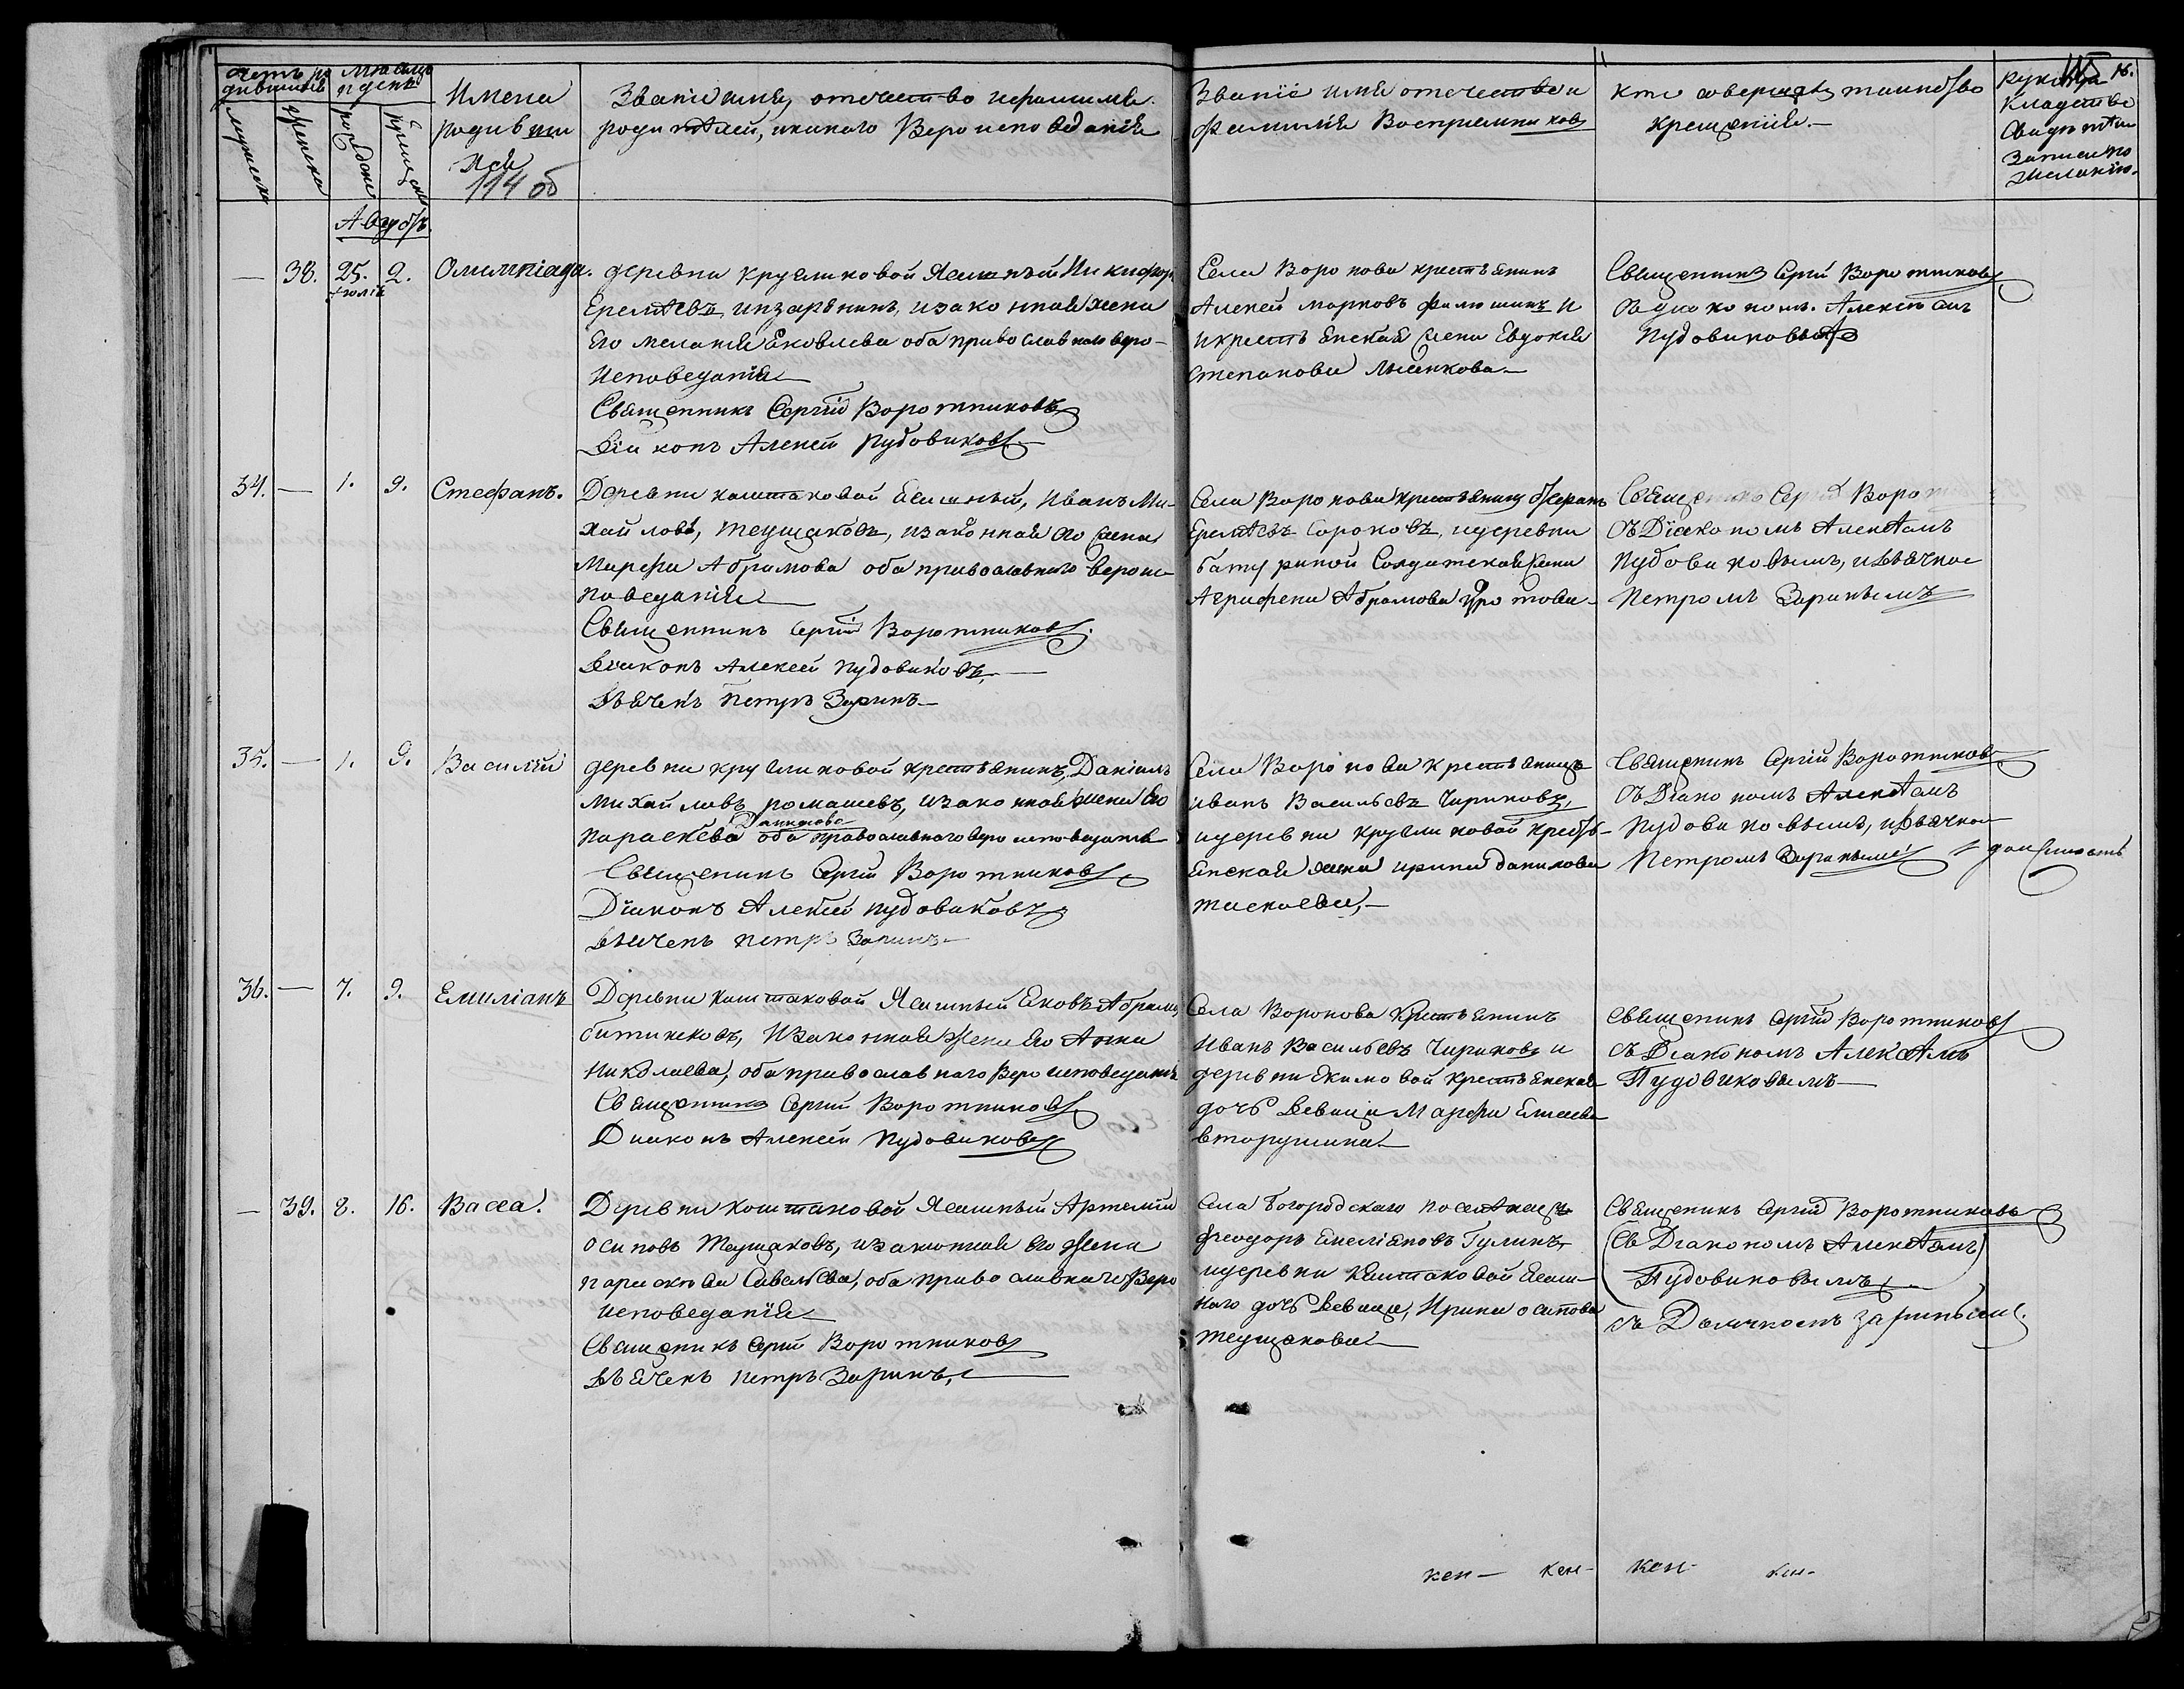 Счетъ родившихся
мужеска
женска
Мѣсяцъ и день
рожденія
крещенія
Имена
родивши
хся
114 об
Званіе имя, отечество и фамилія
родителей, и какого Вероисповеданія
Званіе имя отечество и
фамилія Воспріемниковъ
Кто совершалъ таинство
крещенія.—
115
16.
Рукопри
кладство
свидѣтѣл
записи по
желанію.
Августъ.
— 38. 25. Іюля 2. Олимпіада.
деревни Кругликовой Ясашный Никифоръ
Еремѣевъ, инзарѣнинъ, и законная жена
Его меланія Яковлева оба православнаго веро-
исповеданія
Священникъ Сергій Воротниковъ
Діаконъ Алексей Пудовиковъ
Села Воронова крестьянинъ
Алексей марковъ филюшинъ и
и крестьянская жена Евдокія
степанова Лысенкова
Священникъ Сергій Воротниковъ
съ диакономъ Алексѣемъ
Пудовиковымъ
34. — 1. 9. Стефанъ.
Деревни каштаковой Ясашный, Иванъ Ми-
хайловъ, Теущаковъ, и законная его жена
Марфа Абрамова оба православнаго вероис-
поведанія
Священникъ Сергій Воротниковъ
Діаконъ Алексей Пудовиковъ,
Дьячекъ Петръ Заринъ
Села Воронова крестьянинъ
Еремѣевъ Сороковъ, и деревни
батуриной Солдатская жена
Агрифена Абрамова
Священникъ Сергій Ворот
съ Діакономъ Алексѣемъ
Пудовиковымъ, и Дьячкомъ
Петромъ Заринымъ
35. — 1. 9. Василій
деревни кругликовой крестьянинъ, Даніилъ
Михайловъ ромашевъ, и законная жена Его
Параскева Данилова оба православнаго вероисповеданія
Священникъ Сергій Воротниковъ
Діаконъ Алексей пудовиковъ
Дьячекъ петръ Заринъ
Села Воронова крестьянинъ
иванъ Васильевъ Чириковъ,
и деревни кругликовой крестья-
янская жена ирина данилова
Священникъ Сергій Воротниковъ
съ Діакономъ Алексѣемъ
Пудовиковымъ, и Дьячкомъ
Петромъ Заринымъ
36. — 7. 9. Емиліанъ
Деревни каштаковой Ясашный Яковъ Абрамовъ
И законная Жена Его Анна
Николаева, оба православнаго Вероисповеданія
Священникъ Сергій Воротниковъ
Діаконъ Алексей Пудовиковъ
Села Воронова Крестьянинъ
Иванъ Васильевъ Чириковъ и
деревни Екимовой крестьянская
дочь Девица Марфа Елисеева
вторушина
Священникъ Сергій Воротниковъ
съ Діакономъ Алексѣемъ
Пудовиковымъ
— 39. 8. 16. Васса.
Деревни Коштаковой Ясашный Артемій
Осиповъ Теущаковъ, и законная его Жена
параскева Савельева, оба православнаго Веро
исповеданія
Священникъ Сергій Воротниковъ
Дьячекъ петръ Заринъ,
Села Богородскаго поселѣнецъ
Феодоръ Емельяновъ Гулинъ,
и деревни Каштаковой Ясаш-
наго дочь Девица, Ирина осипова
теущакова
Священникъ Сергій Воротниковъ
(Съ Діакономъ Алексѣемъ)
Пудовиковымъ
съ Дьячкомъ Заринымъ.
кен- кен- кен- кен-